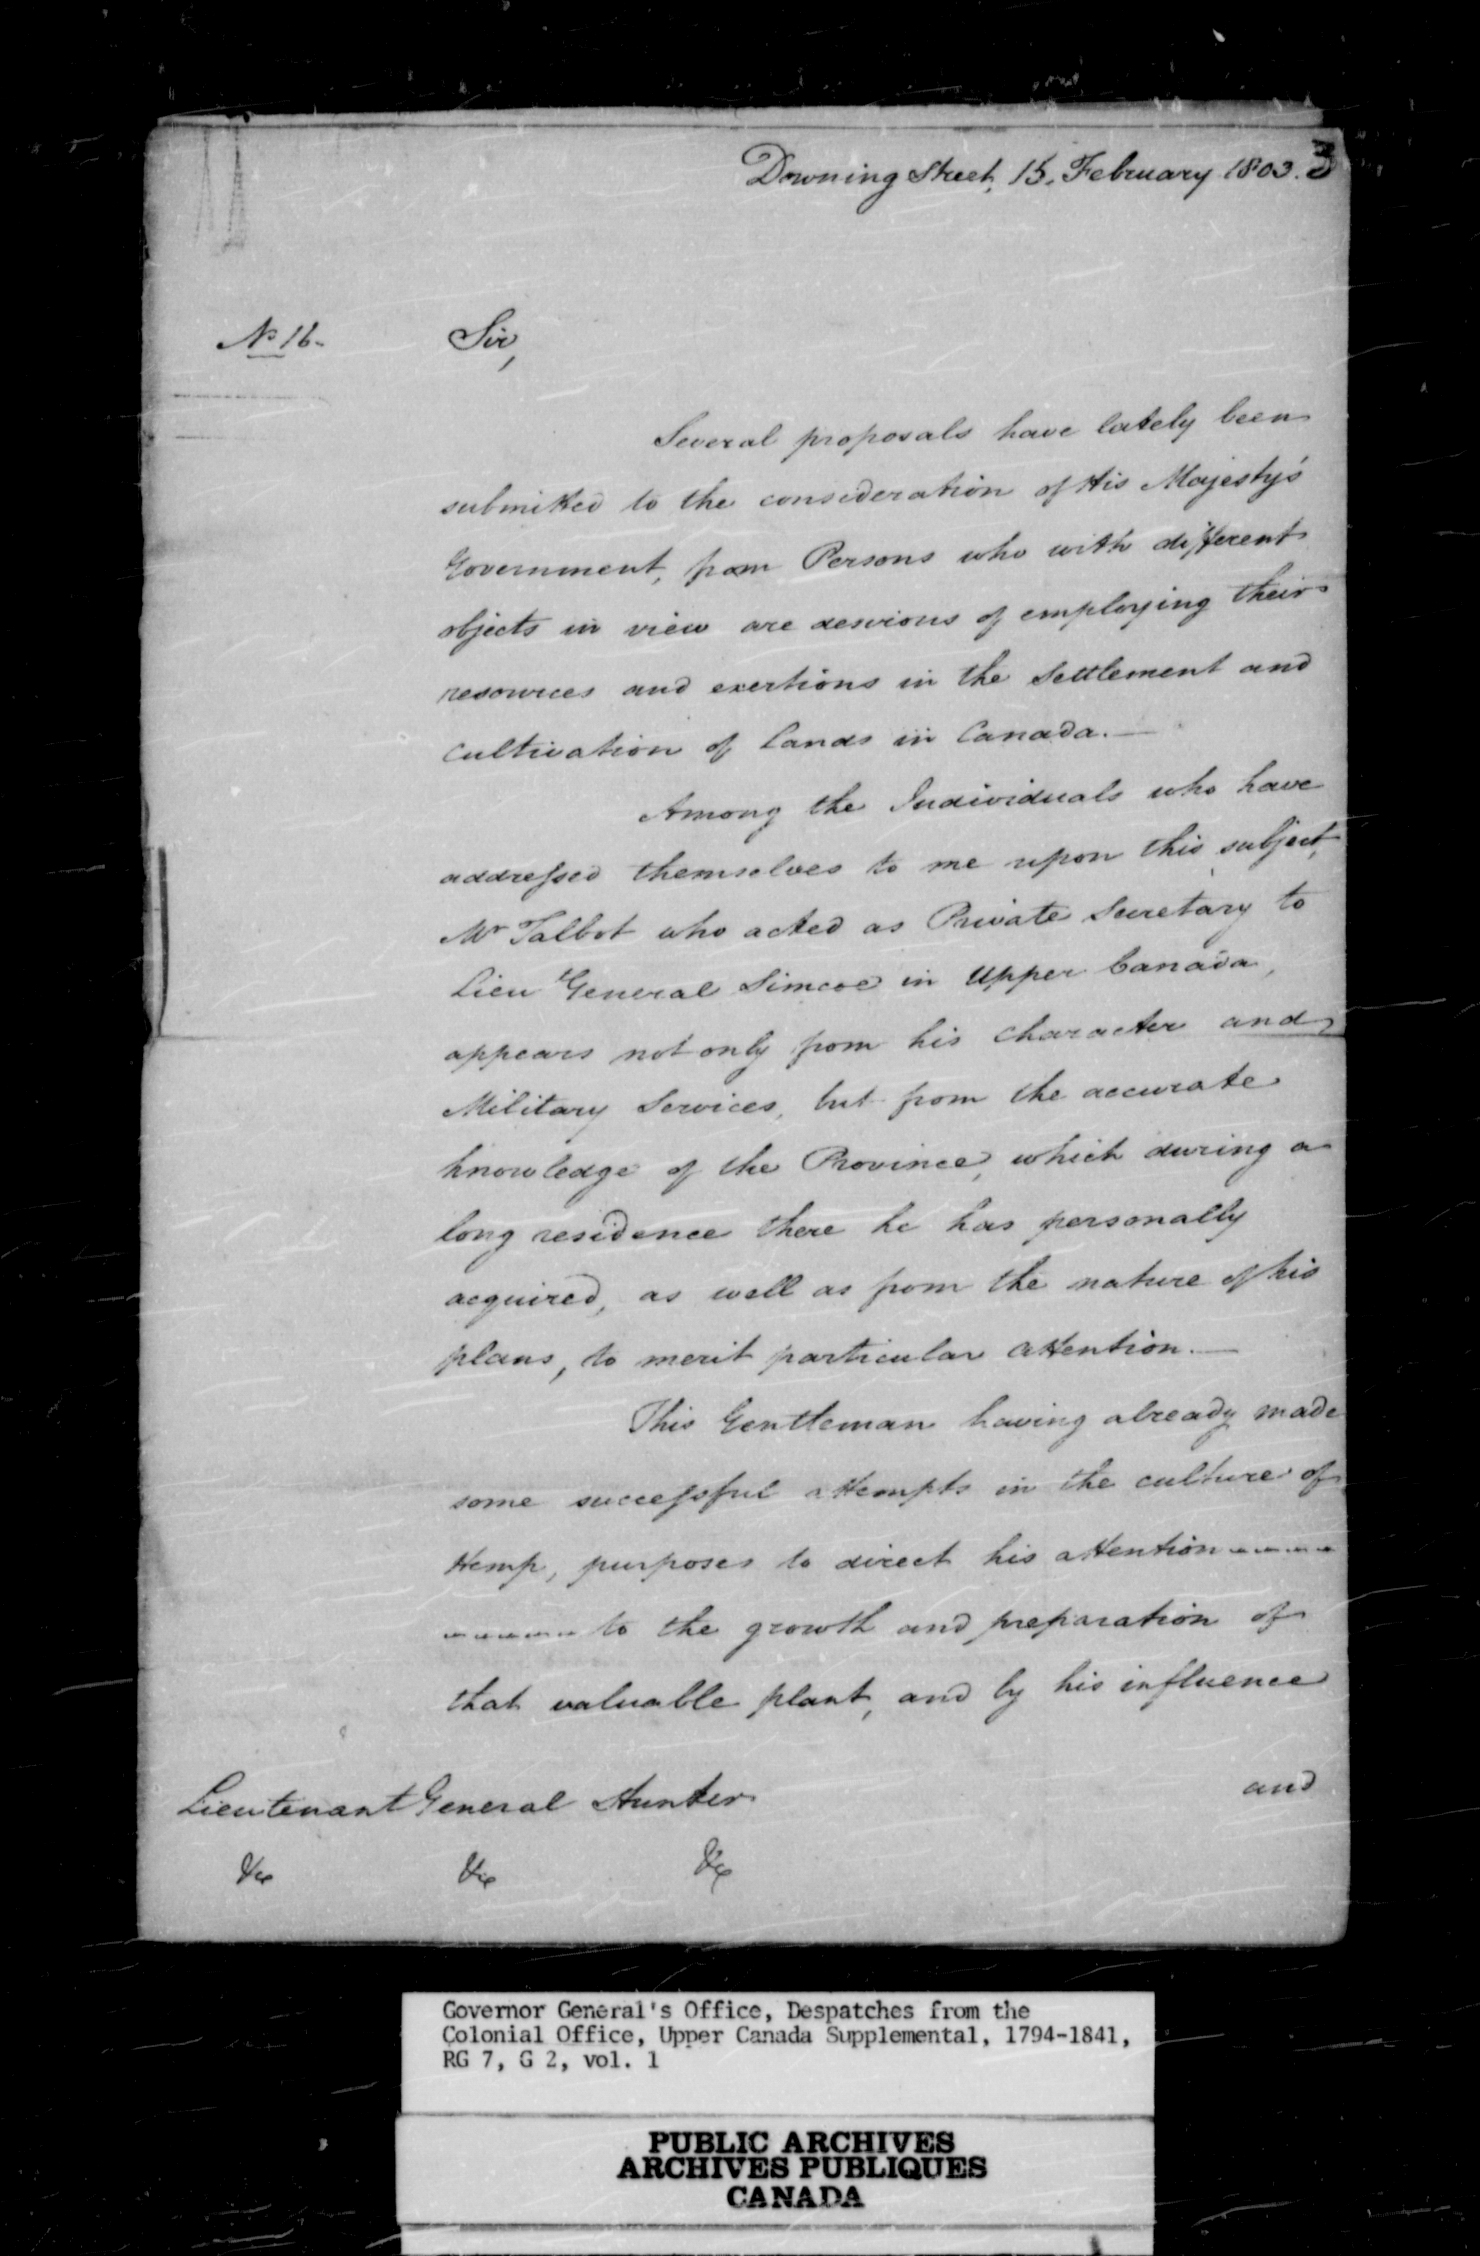 Downing Street, 15. February 1803. 3
No 16.
Sir,
Several proposals have lately been
submitted to the consideration of His Majesty's
Government, from Persons who with different
objects in view are desirous of employing their
resources and exertions in the Settlement and
Cultivation of Lands in Canada.—
Among the Individuals who have
addressed themselves to me upon this subject,
Mr Talbot who acted as Private Secretary to
Lieut General Simcoe in Upper Canada,
appears not only from his Character and
Military Services, but from the accurate
knowledge of the Province, which during a
long residence there he has personally
acquired, as well as from the nature of his
plans, to merit particular attention.—
This Gentleman having already made
some successful attempts in the culture of
Hemp, purposes to direct his attention
to the growth and preparation of
that valuable plant, and by his influence
and
Lieutenant General Hunter
&c &c &c
Governor General's Office, Despatches from the
Colonial Office, Upper Canada Supplemental, 1794-1841,
RG 7, G 2, vol. 1
PUBLIC ARCHIVES
ARCHIVES PUBLIQUES
CANADA